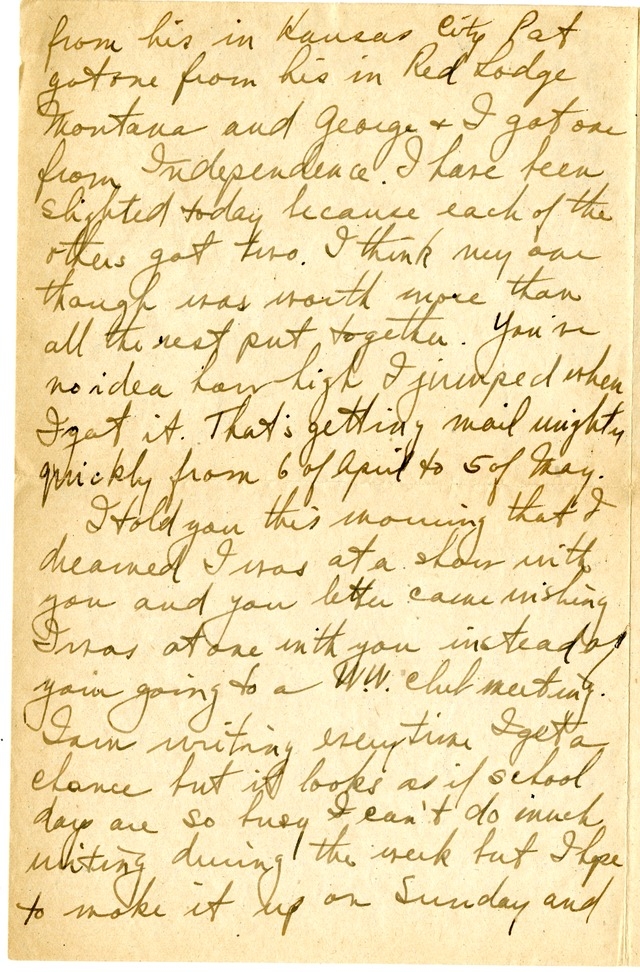 from his in Kansas City Pat
got one from his in Red Lodge
Montana and George & I got one
from Independence. I have been
slighted today because each of the
others got two. I think my one
though was worth more than
all the rest put together. You've
no idea how high I jumped when
I got it. That's getting mail mighty
quickly from 6 of April to 5 of May.
I told you this morning that I
dreamed I was at a show with
you and you letter came wishing
I was at one with you instead of
your going to a W.W. club meeting.
I am writing every time I get a
chance but it looks as if school
days are so busy I can't do much
writing during the week but I hope
to make it up on Sunday and